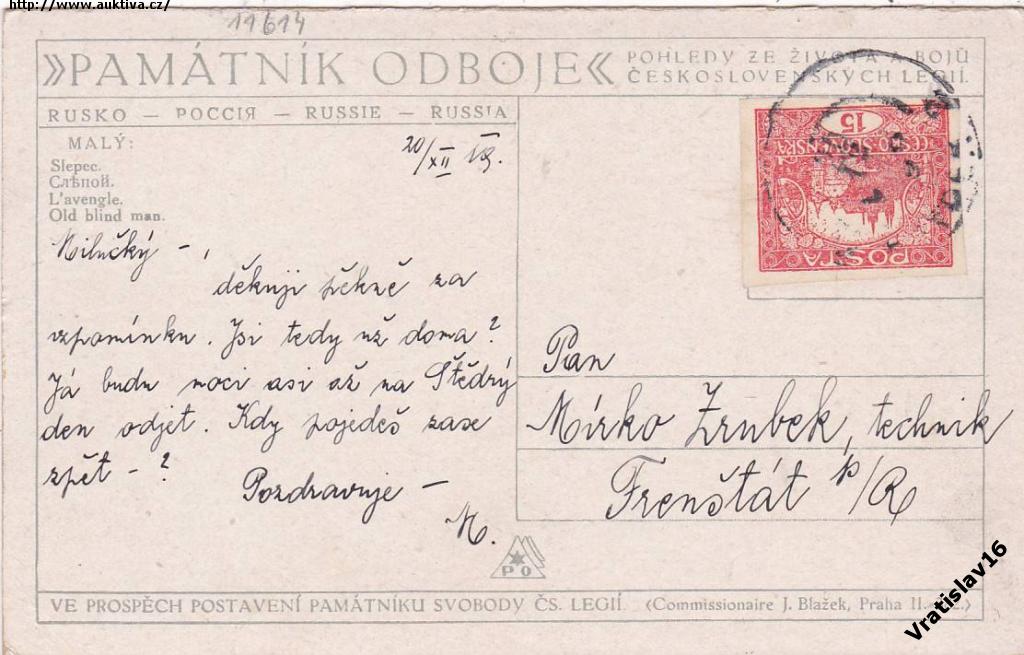 http://www.auktiva.cz/
11614
»PAMÁTNÍK ODBOJE«
POHLEDY ZE ŽIVOTA A BOJŮ
ČESKOSLOVENSKÝCH LEGIÍ.
RUSKO — РОССІЯ — RUSSIE — RUSSIA
MALÝ:
Slepec.
Слѣпой.
L'avengle.
Old blind man.
20/XII 19.
Milučký – ,
děkuji pěkně za
vzpomínku. Jsi tedy už doma?
Já budu moci asi až na Štědrý
den odjet. Kdy pojedeš zase
zpět – ?
Pozdravuje –
M.
15
ČESKO-SLOVENSKÁ
POŠTA
Pan
Mirko Zrubek, technik
Frenštát p/R
PO
VE PROSPĚCH POSTAVENÍ PAMÁTNÍKU SVOBODY ČS. LEGIÍ. (Commissionaire J. Blažek, Praha II.
Vratislav16